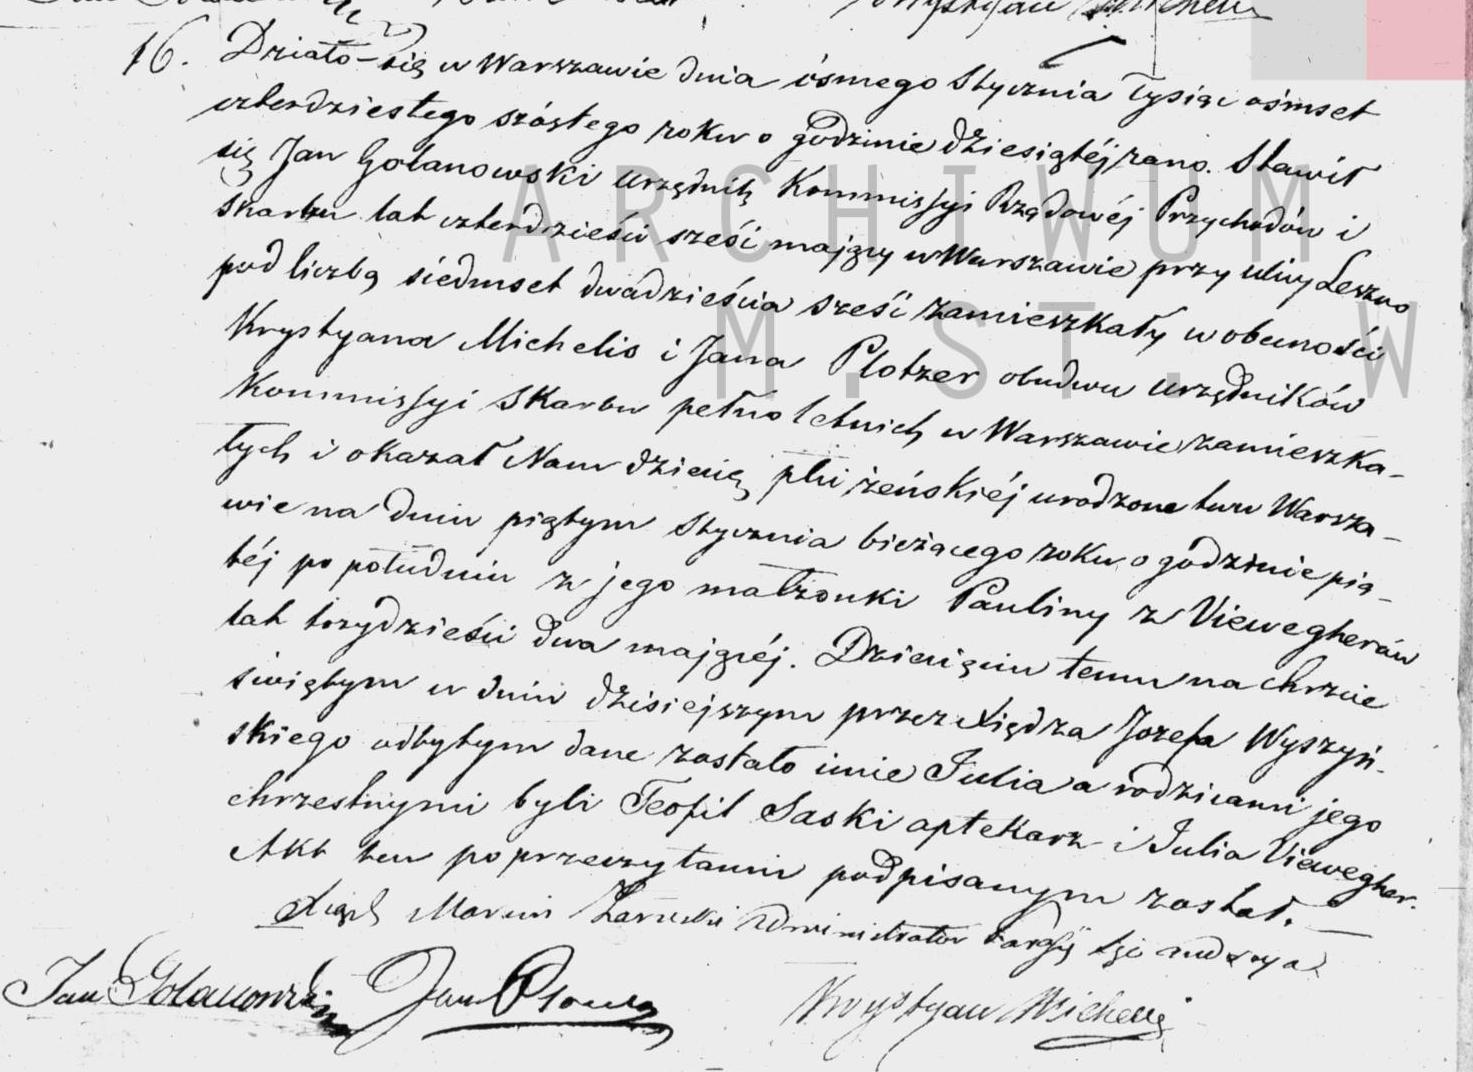 16. Działo się w Warszawie dnia ósmego Stycznia Tysiąc ośmset
czterdziestego szóstego roku o godzinie dziesiątéj rano. Stawił
się Jan Golanowski Urzędnik Kommissyi Rządowéj Przychodów i
Skarbu lat czterdzieści sześć mający w Warszawie przy ulicy Leszno
pod liczbą siedmset dwadzieścia sześć zamieszkały w obecności
Krystyana Michelis i Jana Plotzer obudwu urzędników
Kommissyi Skarbu pełnoletnich w Warszawie zamieszka-
łych i okazał Nam dziecię płci żeńskiéj urodzone tu w Warsza-
wie na dniu piątym Stycznia bieżącego roku o godzinie pią-
téj po południu z jego małżonki Pauliny z Viewegherów
lat trzydzieści dwa mającéj. Dziecięciu temu na chrzcie
świętym w dniu dzisiejszym przez Xiędza Jozefa Wyszyń-
skiego odbytym dane zostało imie Julia a rodzicami jego
chrzestnymi byli Teofil Saski aptekarz i Julia Viewegher.
Akt ten po przeczytaniu podpisanym został.
Xiądz Marcin Administrator
Jan Golanowski Jan Krystyan Michelis
ARCHIWUM
M. ST. W